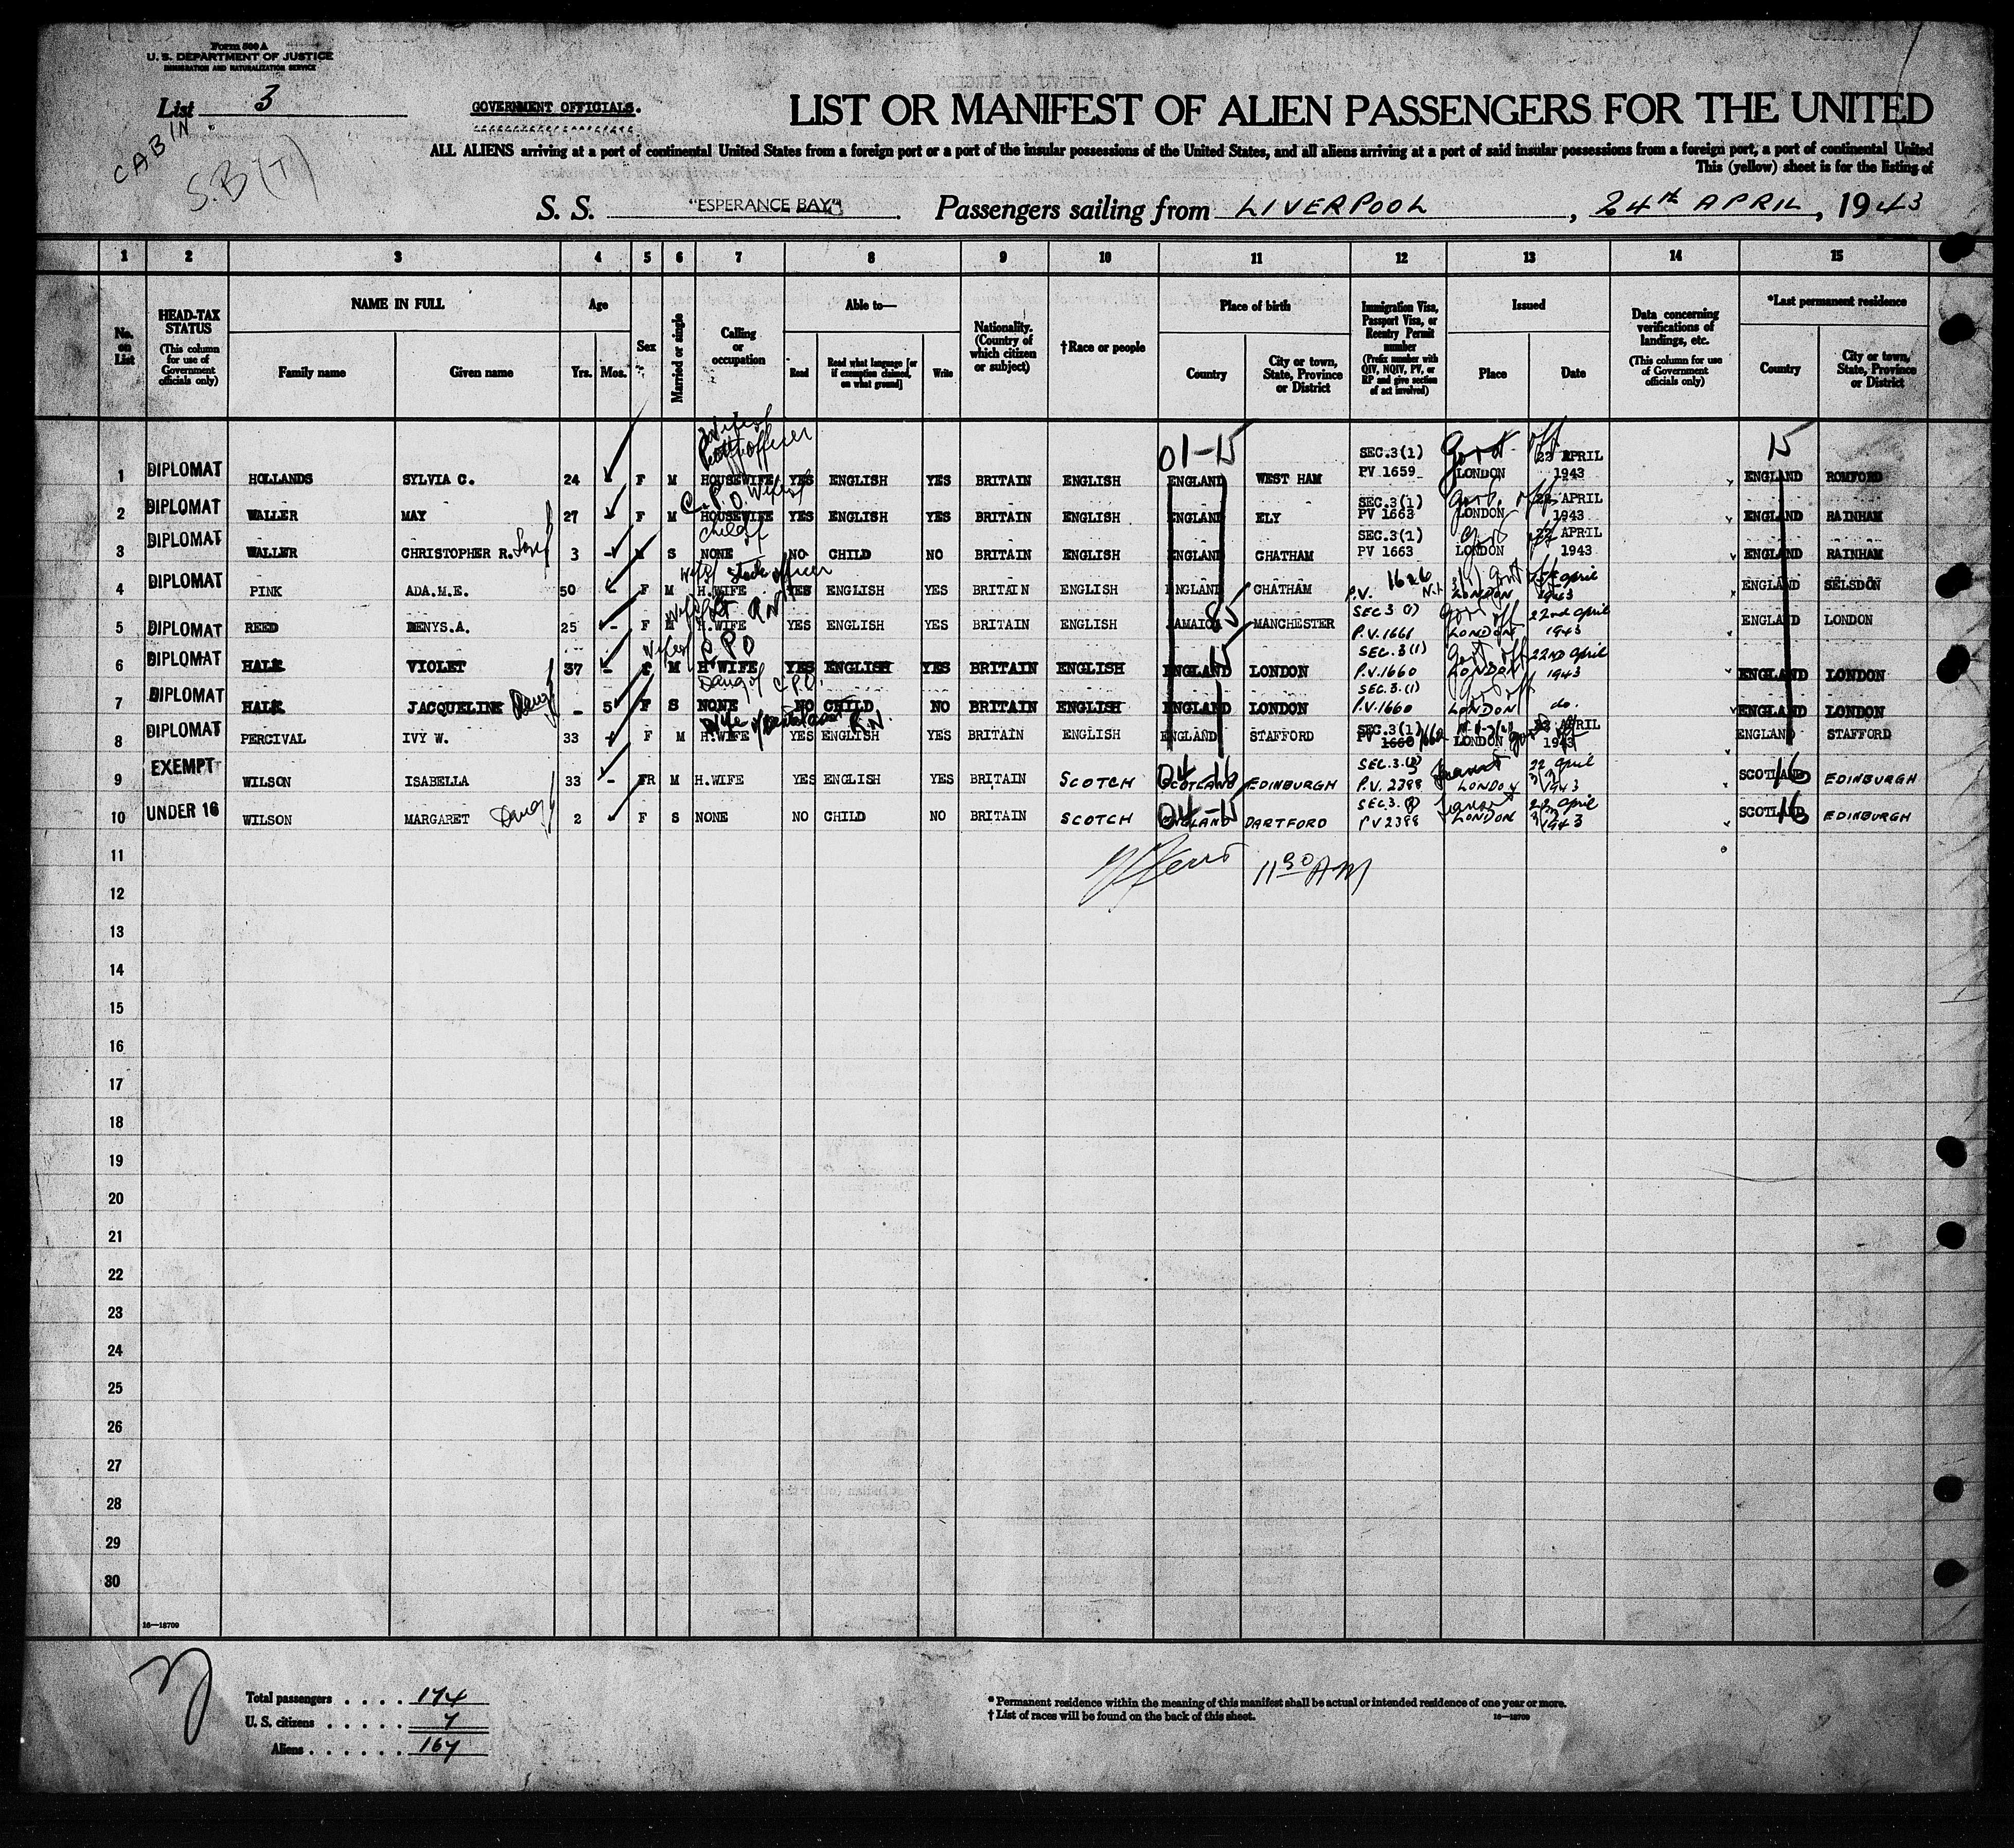 Form 500 A
U. S. DEPARTMENT OF JUSTICE
IMMIGRATION AND NATURALIZATION SERVICE
List 3
CABIN
S.B (T)
GOVERNMENT OFFICIALS.
LIST OR MANIFEST OF ALIEN PASSENGERS FOR THE UNITED
ALL ALIENS arriving at a port of continental United States from a foreign port or a port of the insular possessions of the United States, and all aliens arriving at a port of said insular possessions from a foreign port, a port of continental United
This (yellow) sheet is for the listing of
S. S. "ESPERANCE BAY" Passengers sailing from LIVERPOOL, 24th APRIL, 1943
1 2 3 4 5 6 7 8 9 10 11 12 13 14 15
No. on List
HEAD-TAX STATUS (This column for use of Government officials only)
NAME IN FULL
Family name Given name
Age
Yrs. Mos.
Sex
Married or single
Calling or occupation
Able to—
Read Read what language [or if exemption claimed, on what ground] Write
Nationality. (Country of which citizen or subject)
†Race or people
Place of birth
Country City or town, State, Province or District
Immigration Visa, Passport Visa, or Reentry Permit number (Prefix number with QIV, NQIV, PV, or RP and give section of act involved)
Issued
Place Date
Data concerning verifications of landings, etc. (This column for use of Government officials only)
*Last permanent residence
Country City or town, State, Province or District
01-15 15
1 DIPLOMAT HOLLANDS SYLVIA C. 24 F M HOUSEWIFE YES ENGLISH YES BRITAIN ENGLISH ENGLAND WEST HAM SEC.3(1) PV 1659 Govt off LONDON 23 APRIL 1943 ENGLAND ROMFORD
C.P.O. Wife of
2 DIPLOMAT WALLER MAY 27 F M HOUSEWIFE YES ENGLISH YES BRITAIN ENGLISH ENGLAND ELY SEC.3(1) PV 1663 Govt. off LONDON 22 APRIL 1943 ENGLAND RAINHAM
Child of
3 DIPLOMAT WALLER CHRISTOPHER R. Son 3 - M S NONE NO CHILD NO BRITAIN ENGLISH ENGLAND CHATHAM SEC.3(1) PV 1663 Gov LONDON 22 APRIL 1943 ENGLAND RAINHAM
Wife of stock officer
4 DIPLOMAT PINK ADA.M.E. 50 F M H.WIFE YES ENGLISH YES BRITAIN ENGLISH ENGLAND CHATHAM P.V. 1626 3(1) Govt off LONDON April 1943 ENGLAND SELSDON
Wife of Lt RN
5 DIPLOMAT REED DENYS.A. 25 - F M H.WIFE YES ENGLISH YES BRITAIN ENGLISH JAMAICA 85 MANCHESTER SEC 3 (1) P.V.1661 Govt off LONDON 22nd April 1943 ENGLAND LONDON
Wife of CPO
6 DIPLOMAT HALE VIOLET 37 - F M H WIFE YES ENGLISH YES BRITAIN ENGLISH ENGLAND 15 LONDON SEC.3(1) P.V.1660 Govt off LONDON 22ND April 1943 ENGLAND LONDON
Daug of C.P.O.
7 DIPLOMAT HALE JACQUELINE Daug - 5 F S NONE NO CHILD NO BRITAIN ENGLISH ENGLAND LONDON SEC.3.(1) P.V.1660 Govt off LONDON do. ENGLAND LONDON
Wife of R.N.
8 DIPLOMAT PERCIVAL IVY W. 33 - F M H.WIFE YES ENGLISH YES BRITAIN ENGLISH ENGLAND STAFFORD SEC.3(1) PV 1660 1662 LONDON APRIL 1943 ENGLAND STAFFORD
9 EXEMPT WILSON ISABELLA 33 - F M H.WIFE YES ENGLISH YES BRITAIN SCOTCH 04 16 SCOTLAND EDINBURGH SEC.3.(3) P.V. 2388 Transit LONDON 22 April 1943 SCOTLAND 16 EDINBURGH
10 UNDER 16 WILSON MARGARET Daug 2 F S NONE NO CHILD NO BRITAIN SCOTCH 04-15 ENGLAND DARTFORD SEC3. PV 2388 Transit LONDON 22 April 1943 SCOTLAND 16 EDINBURGH
11
11 30 AM
12
13
14
15
16
17
18
19
20
21
22
23
24
25
26
27
28
29
30
16—18709
Total passengers . . . . 174
U. S. citizens . . . . . 7
Aliens . . . . . . 167
* Permanent residence within the meaning of this manifest shall be actual or intended residence of one year or more.
† List of races will be found on the back of this sheet.
16—18709